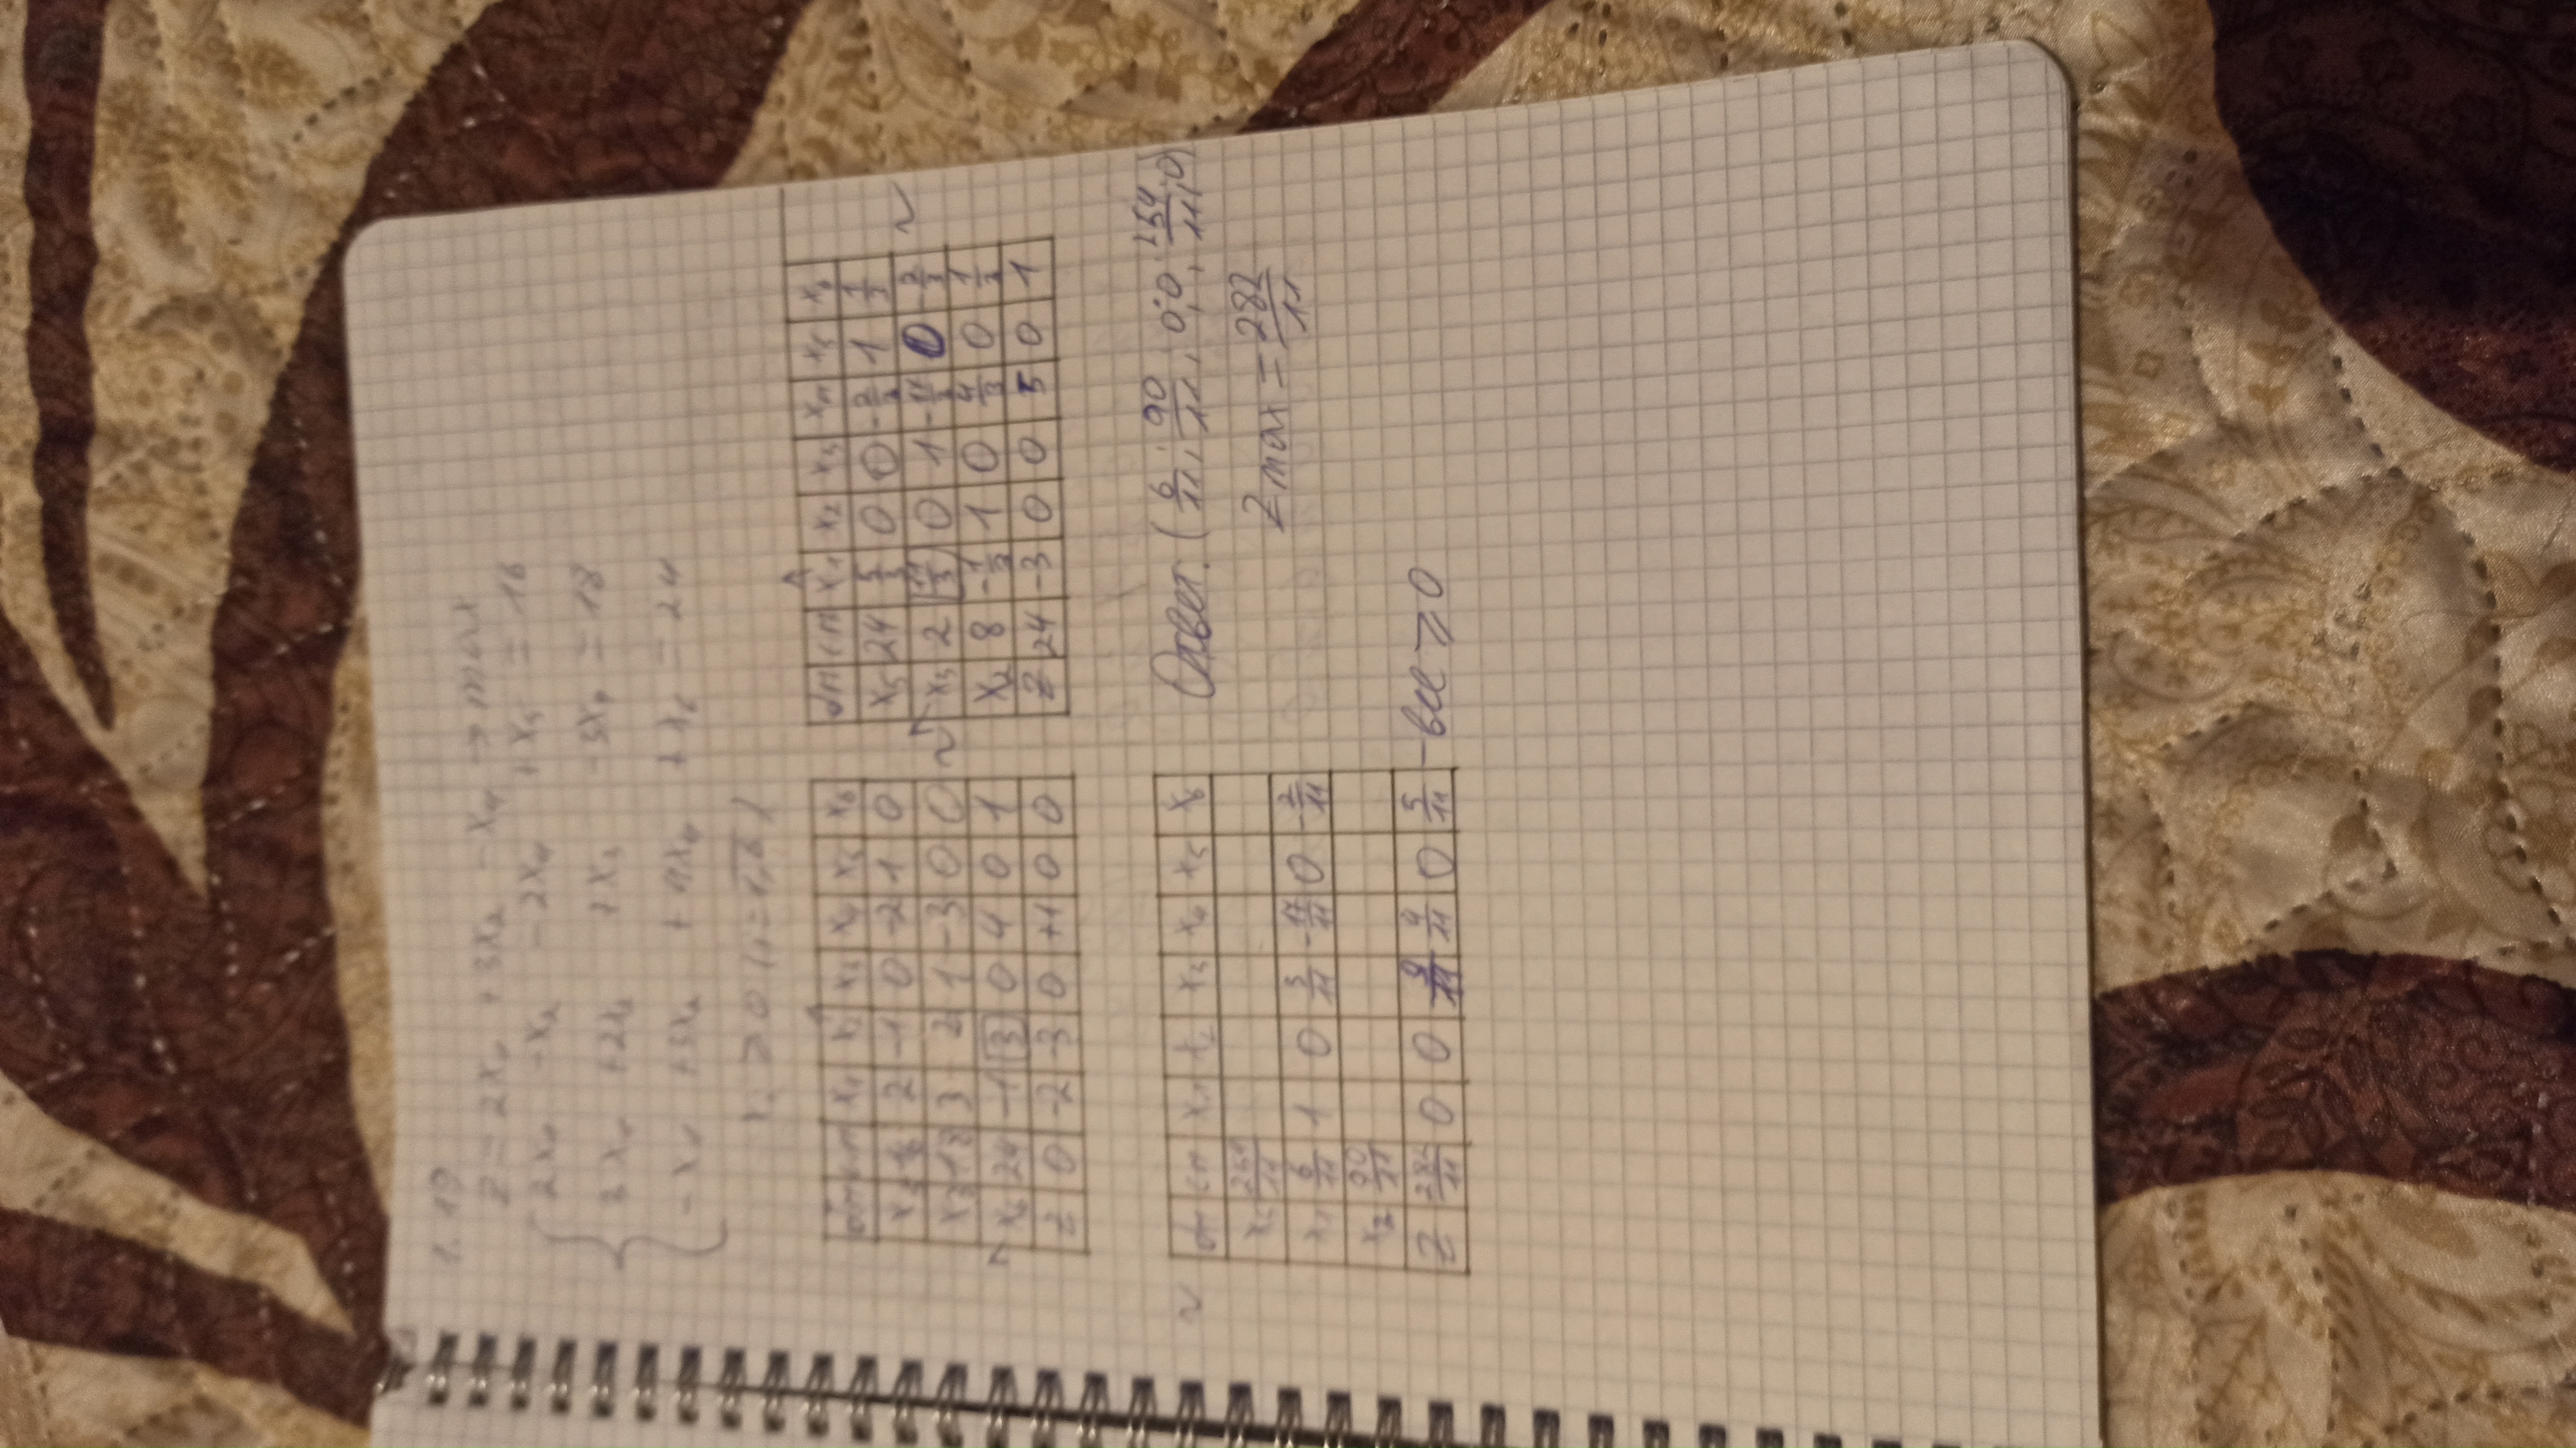 1.19
Z = 2x₁ + 3x₂ - x₄ → max
2x₁ - x₂ - 2x₄ + x₅ = 16
3x₁ + 2x₂ + x₃ - 3x₄ = 18
-x₁ + 3x₂ + 4x₄ + x₆ = 24
xᵢ ≥ 0 (i = 1,6)
бп сп x₁ x₂ x₃ x₄ x₅ x₆
x₅ 16 2 -1 0 -2 1 0
x₃ 18 3 2 1 -3 0 0
x₆ 24 -1 3 0 4 0 1
Z 0 -2 -3 0 +1 0 0
~
бп сп x₁ x₂ x₃ x₄ x₅ x₆
x₅ 24 5/3 0 0 -2/3 1 1/3
x₃ 2 11/3 0 1 -17/3 0 -2/3
x₂ 8 -1/3 1 0 4/3 0 1/3
Z 24 -3 0 0 5 0 1
~
~
бп сп x₁ x₂ x₃ x₄ x₅ x₆
x₅ 254/11
x₁ 6/11 1 0 3/11 -17/11 0 -2/11
x₂ 90/11
Z 282/11 0 0 9/11 4/11 0 5/11 - все ≥ 0
Ответ: (6/11; 90/11; 0; 0; 254/11; 0)
Z max = 282/11